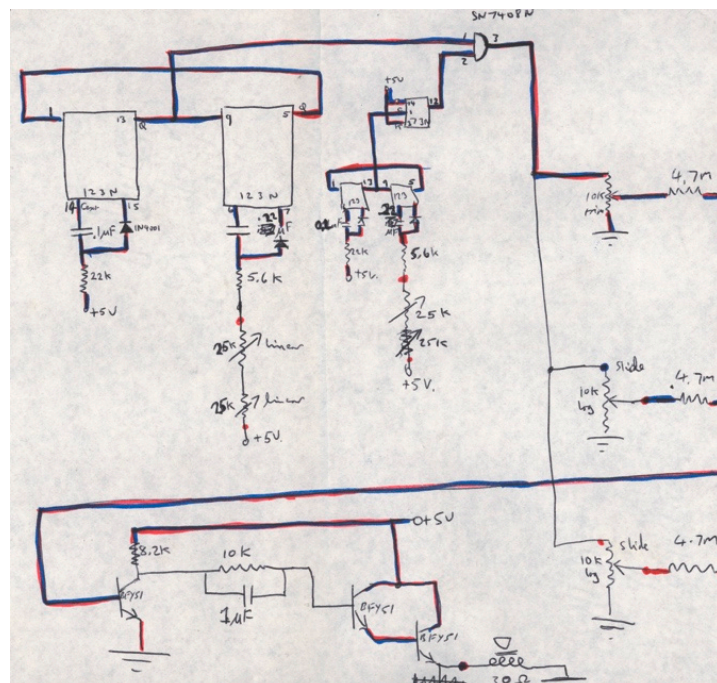 SN7408N
1
3
2
+5V
14
1
12
373N
1
13
Q
9
5
Q
123N
123N
14
Cext
15
.1µF
1N4001
22K
+5V
6
7
.22
µF
5.6K
25K
linear
25K
linear
+5V.
1
13
9
5
123
123
22K
+5V.
5.6K
25K
25K
+5V.
10K
4.7M
slide
10K
log
4.7M
slide
10K
log
4.7M
O+5V
8.2K
BFY51
10K
1µF
BFY51
BFY51
30Ω